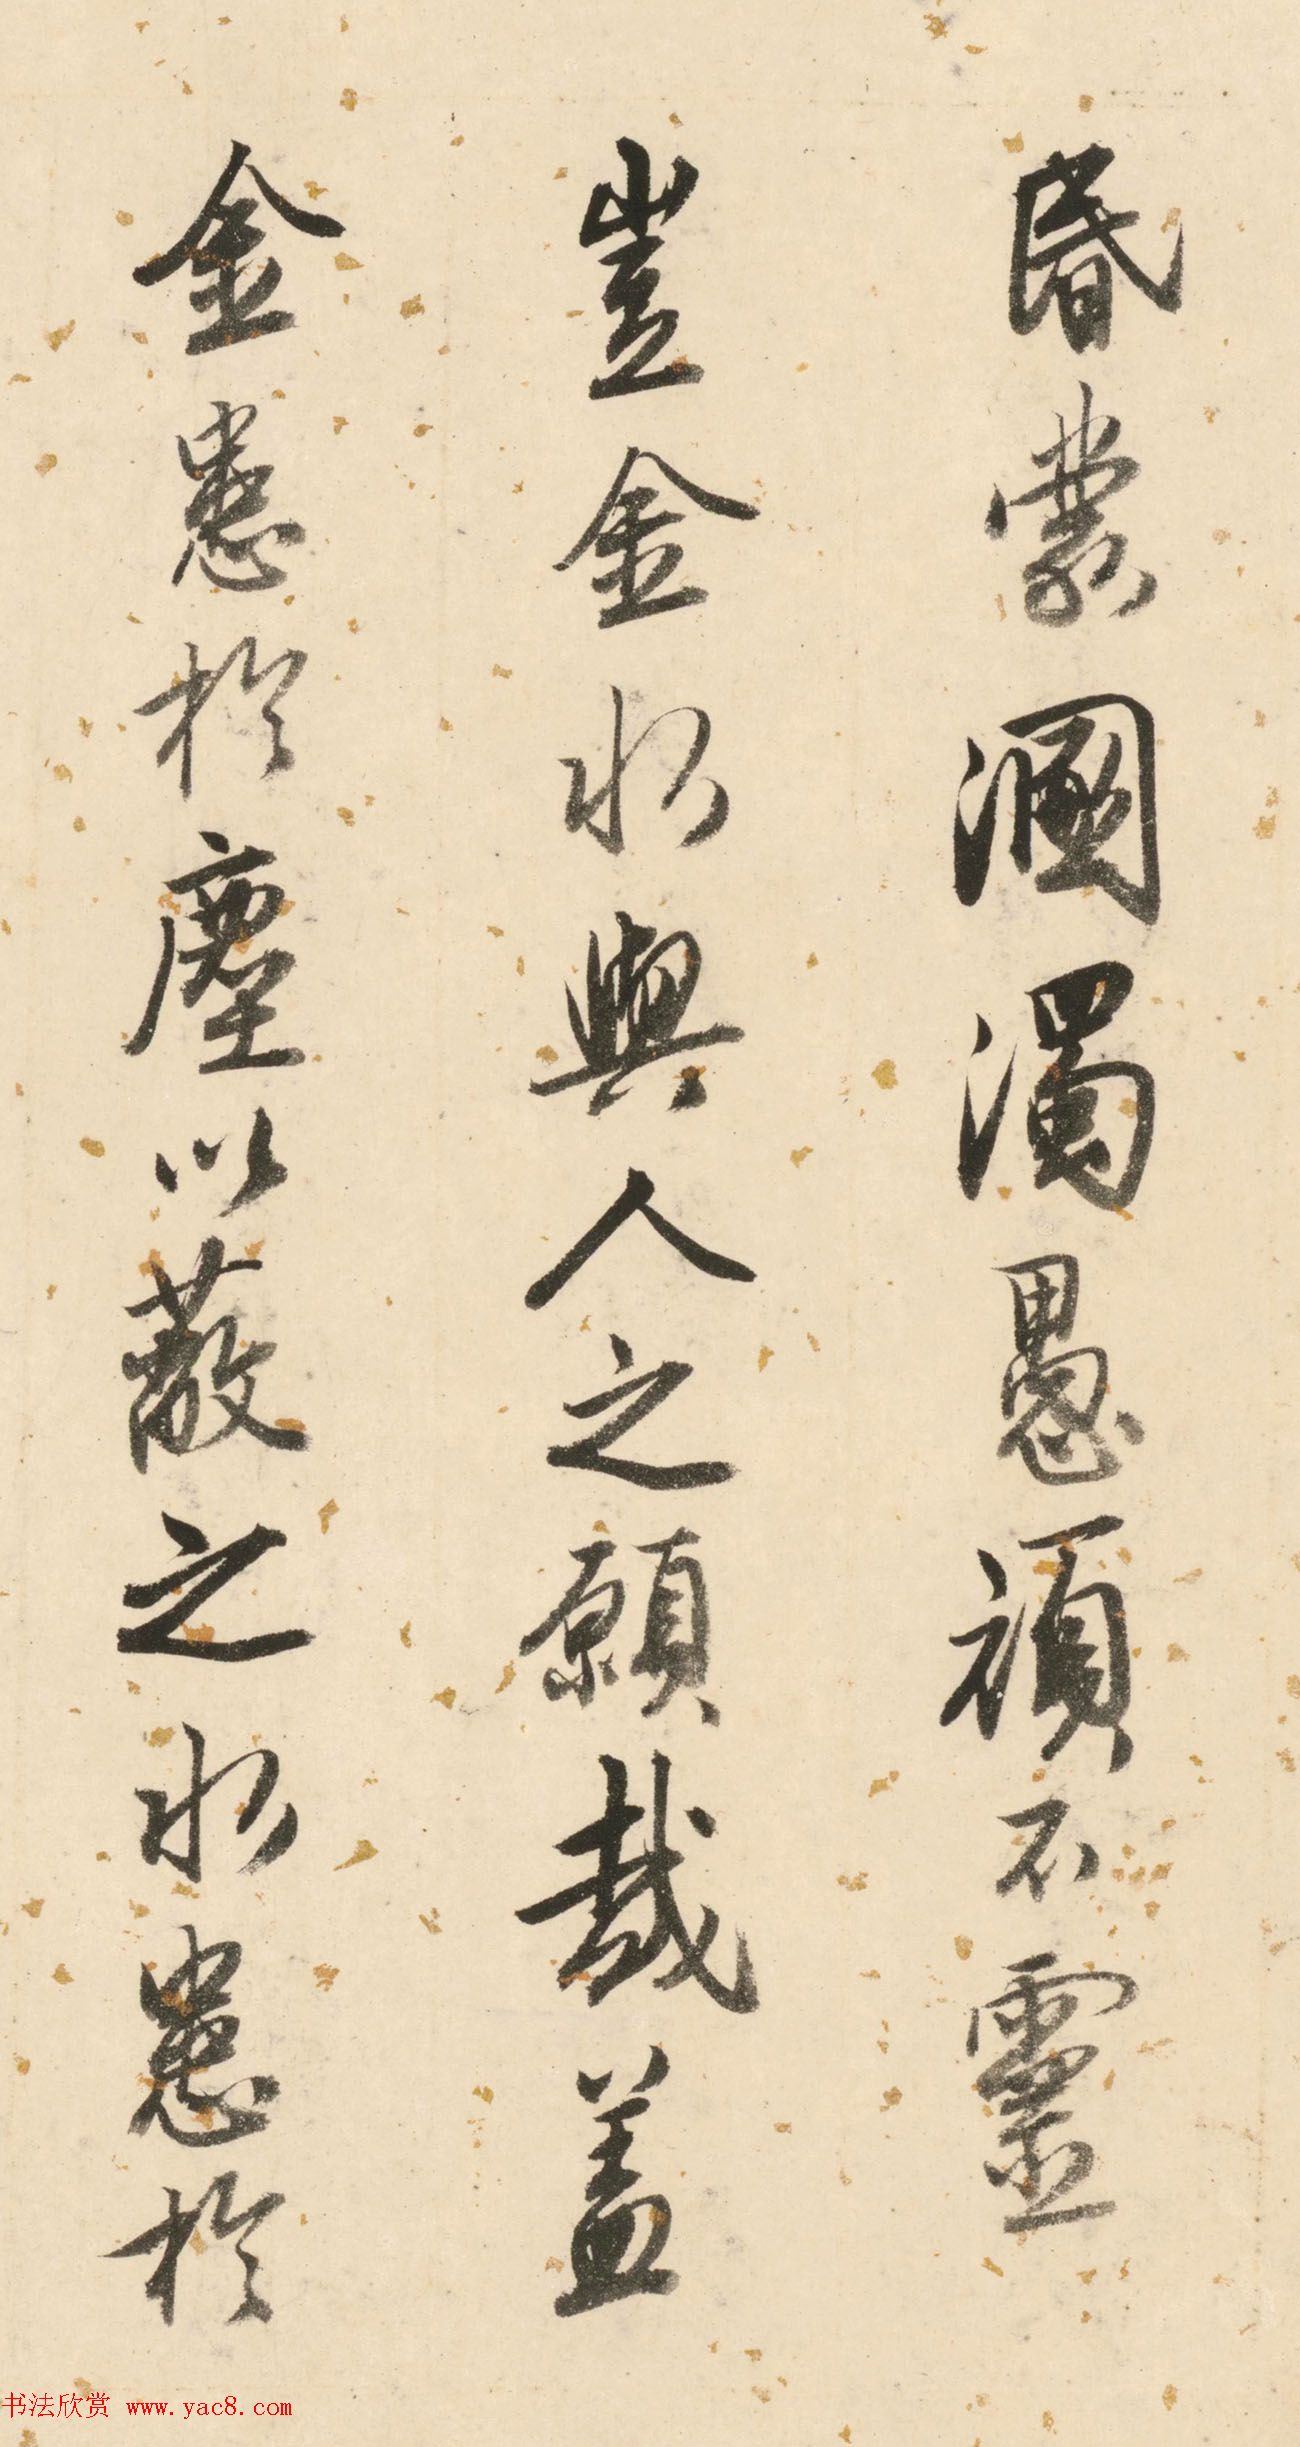 昏蒙溷濁愚頑不靈
豈金水與人之願哉蓋
金患於塵以蔽之水患於
书法欣赏 www.yac8.com